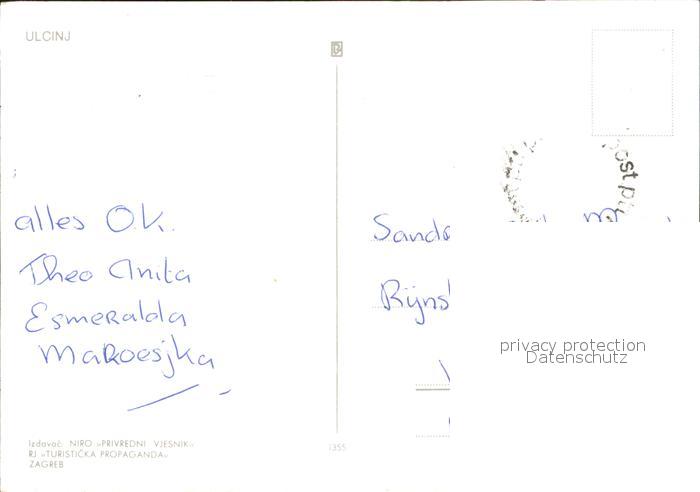 ULCINJ
alles O.K.
Theo Anita
Esmeralda
Maroesjka
Izdavač: NIRO »PRIVREDNI VJESNIK«
RJ »TURISTIČKA PROPAGANDA«
ZAGREB
1355
post
privacy protection
Datenschutz